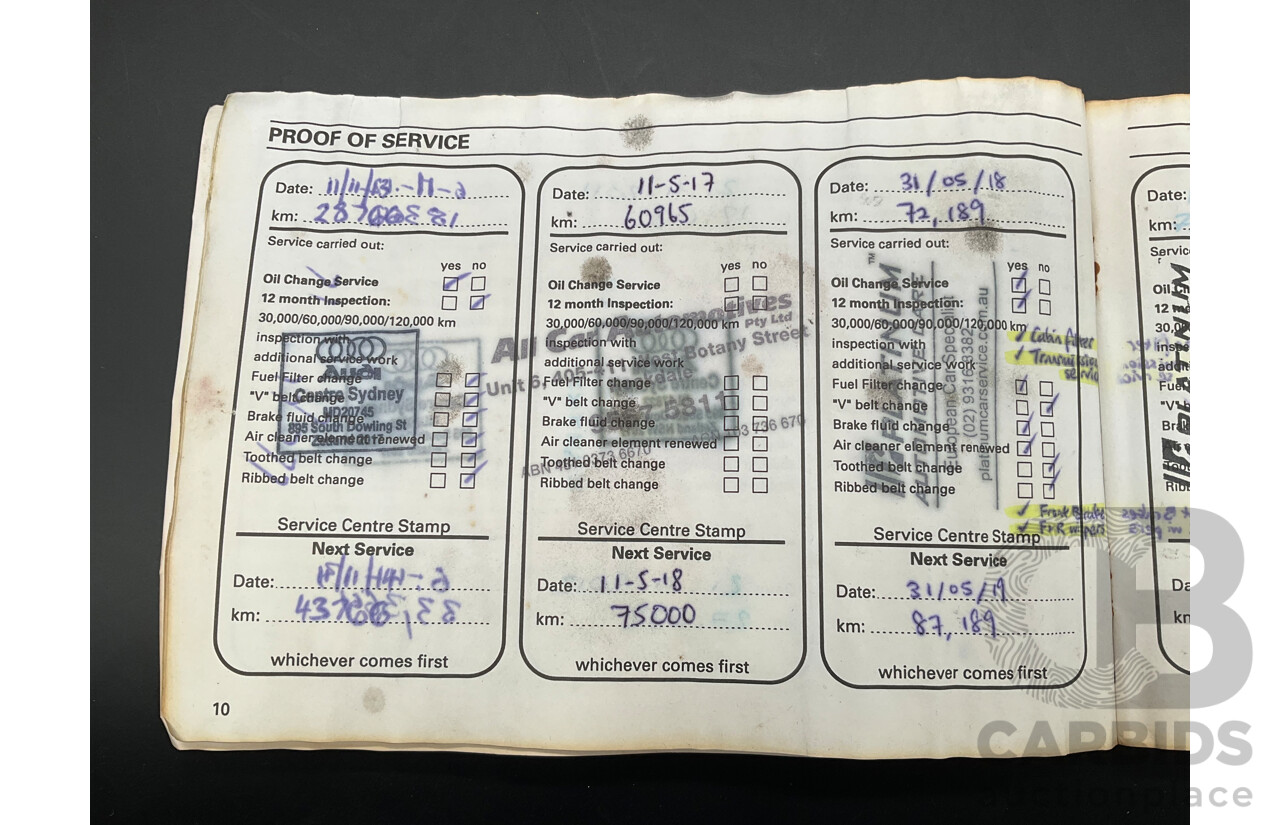 PROOF OF SERVICE
Date:
km:
Service carried out:
yes no
Oil Change Service
12 month Inspection:
30,000/60,000/90,000/120,000 km
inspection with
additional service work
Fuel Filter change
"V" belt change
Brake fluid change
Air cleaner element renewed
Toothed belt change
Ribbed belt change
AUDI
Centre Sydney
MD20745
895 South Dowling St
Service Centre Stamp
Next Service
Date:
km:
whichever comes first
10
Date: 11-5-17
km: 60965
Service carried out:
yes no
Oil Change Service
12 month Inspection:
30,000/60,000/90,000/120,000 km
inspection with
additional service work
Fuel Filter change
"V" belt change
Brake fluid change
Air cleaner element renewed
Toothed belt change
Ribbed belt change
All Car Automotives
Pty Ltd
Botany Street
Service Centre Stamp
Next Service
Date: 11-5-18
km: 75000
whichever comes first
Date: 31/05/18
km: 72,189
Service carried out:
yes no
Oil Change Service
12 month Inspection:
30,000/60,000/90,000/120,000 km
inspection with
additional service work
Fuel Filter change
"V" belt change
Brake fluid change
Air cleaner element renewed
Toothed belt change
Ribbed belt change
✓ Cabin filter
✓ Transmission
service
PLATINUM
TM
European Car Specialist
platinumcarservice.com.au
✓ Front Brakes
✓ F+R wipers
Service Centre Stamp
Next Service
Date: 31/05/19
km: 87,189
whichever comes first
Date:
km:
PLATINUM
CARBIDS
auctionplace